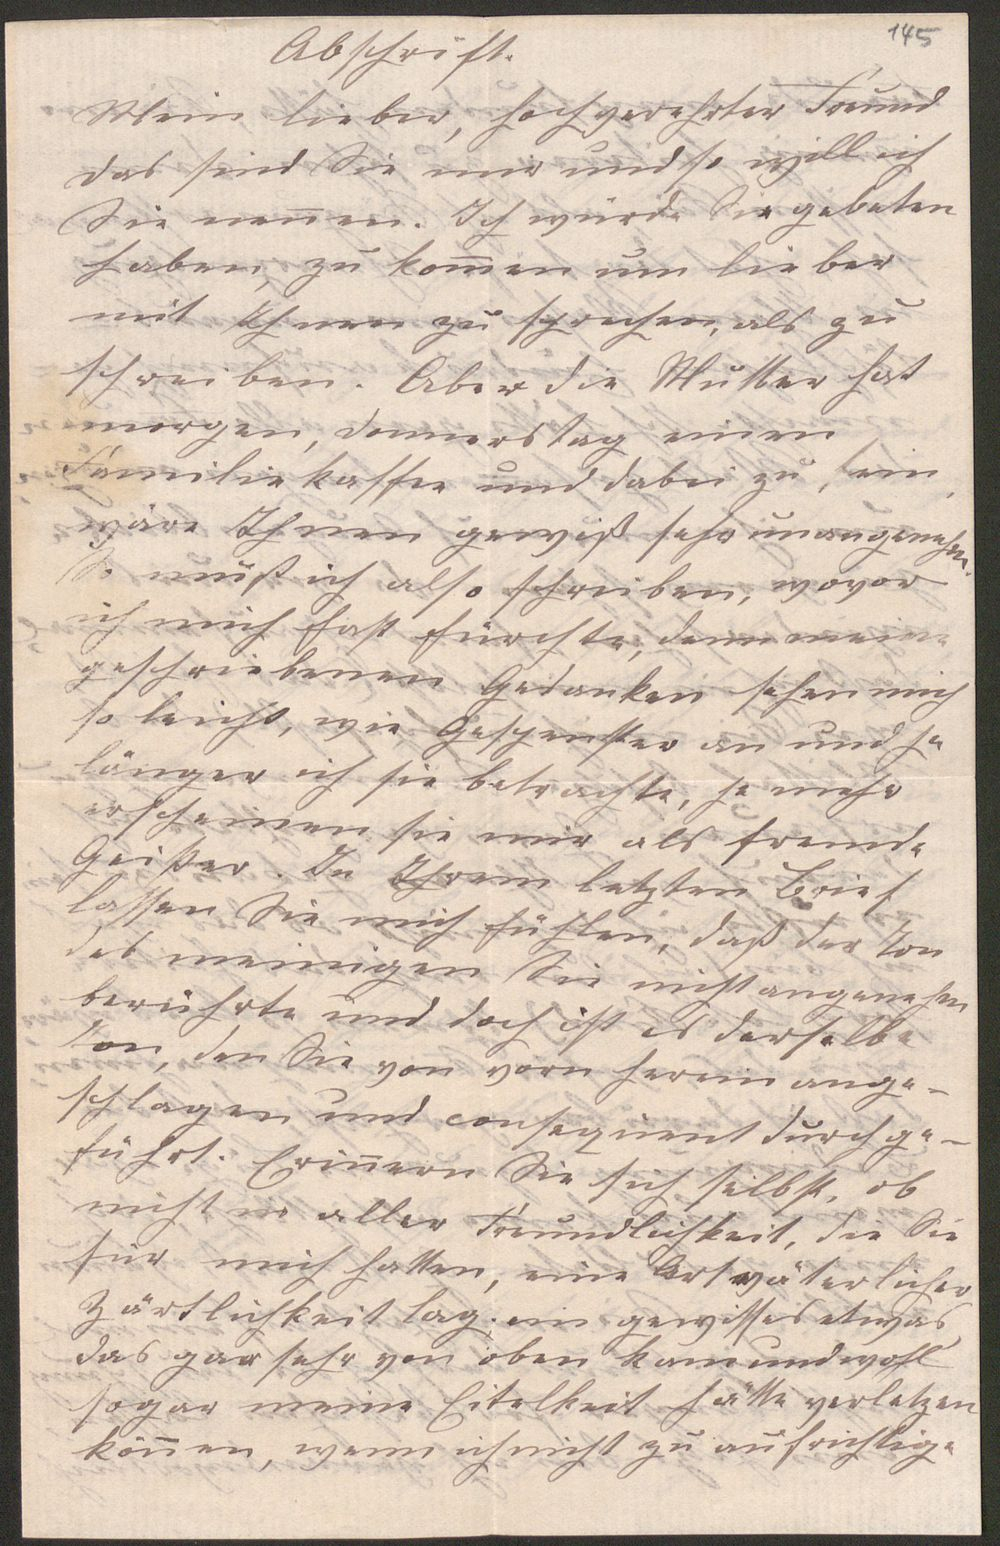 145
Abschrift.
Mein lieber, hochverehrter Freund
das sind Sie mir und so will ich
Sie nen̄en. Ich würde Sie gebeten
haben, zu kom̄en um lieber
mit Ihnen zu sprechen, als zu
schreiben. Aber die Mutter hat
morgen, Donnerstag einen
Familienkaffee und dabei zu sein,
wäre Ihnen gewiß sehr unangenehm.
So muß ich also schreiben, wovor
ich mich fast fürchte, denn meine
geschriebenen Gedanken sehen mich
so leicht, wie Gespenster an und je
länger ich sie betrachte, je mehr
erscheinen sie mir als fremde
Geister. In Ihrem letzten Brief
lassen Sie mich fühlen, daß der Ton
des meinigen Sie nicht angenehm
berührte und doch ist es derselbe
Ton, den Sie von vorn herein ange-
schlagen und consequent durchge-
führt. Erin̄ern Sie sich selbst, ob
nicht in aller Freundlichkeit, die Sie
für mich hatten, eine Art väterlicher
Zärtlichkeit lag, ein gewisses etwas,
das gar sehr von oben kam und wohl
sogar meine Eitelkeit hätte verletzen
kön̄en, wenn ich nicht zu aufrichtige